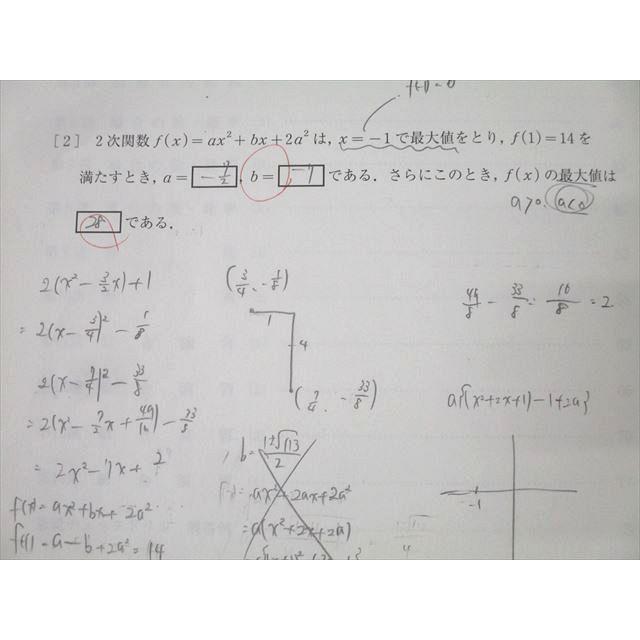 [2] 2次関数 f(x)=ax²+bx+2a² は, x=−1で最大値をとり, f(1)=14を
満たすとき, a= −7/2, b= −7 である. さらにこのとき, f(x)の最大値は
a>0. a<0
28 である.
2(x²−3/2x)+1
=2(x−3/4)²−1/8
2(x−7/4)²−33/8
=2(x²−7/2x+49/16)−33/8
=2x²−7x+2
f(x)=ax²+bx+2a²
f(1)=a−b+2a²=14
(3/4, −1/8)
1
4
(7/4, −33/8)
b=1±√113/2
f(x)=ax²+2ax+2a²
=a(x²+2x+2a)
49/8−33/8=16/8=2
a{(x²+2x+1)−1+2a}
−1